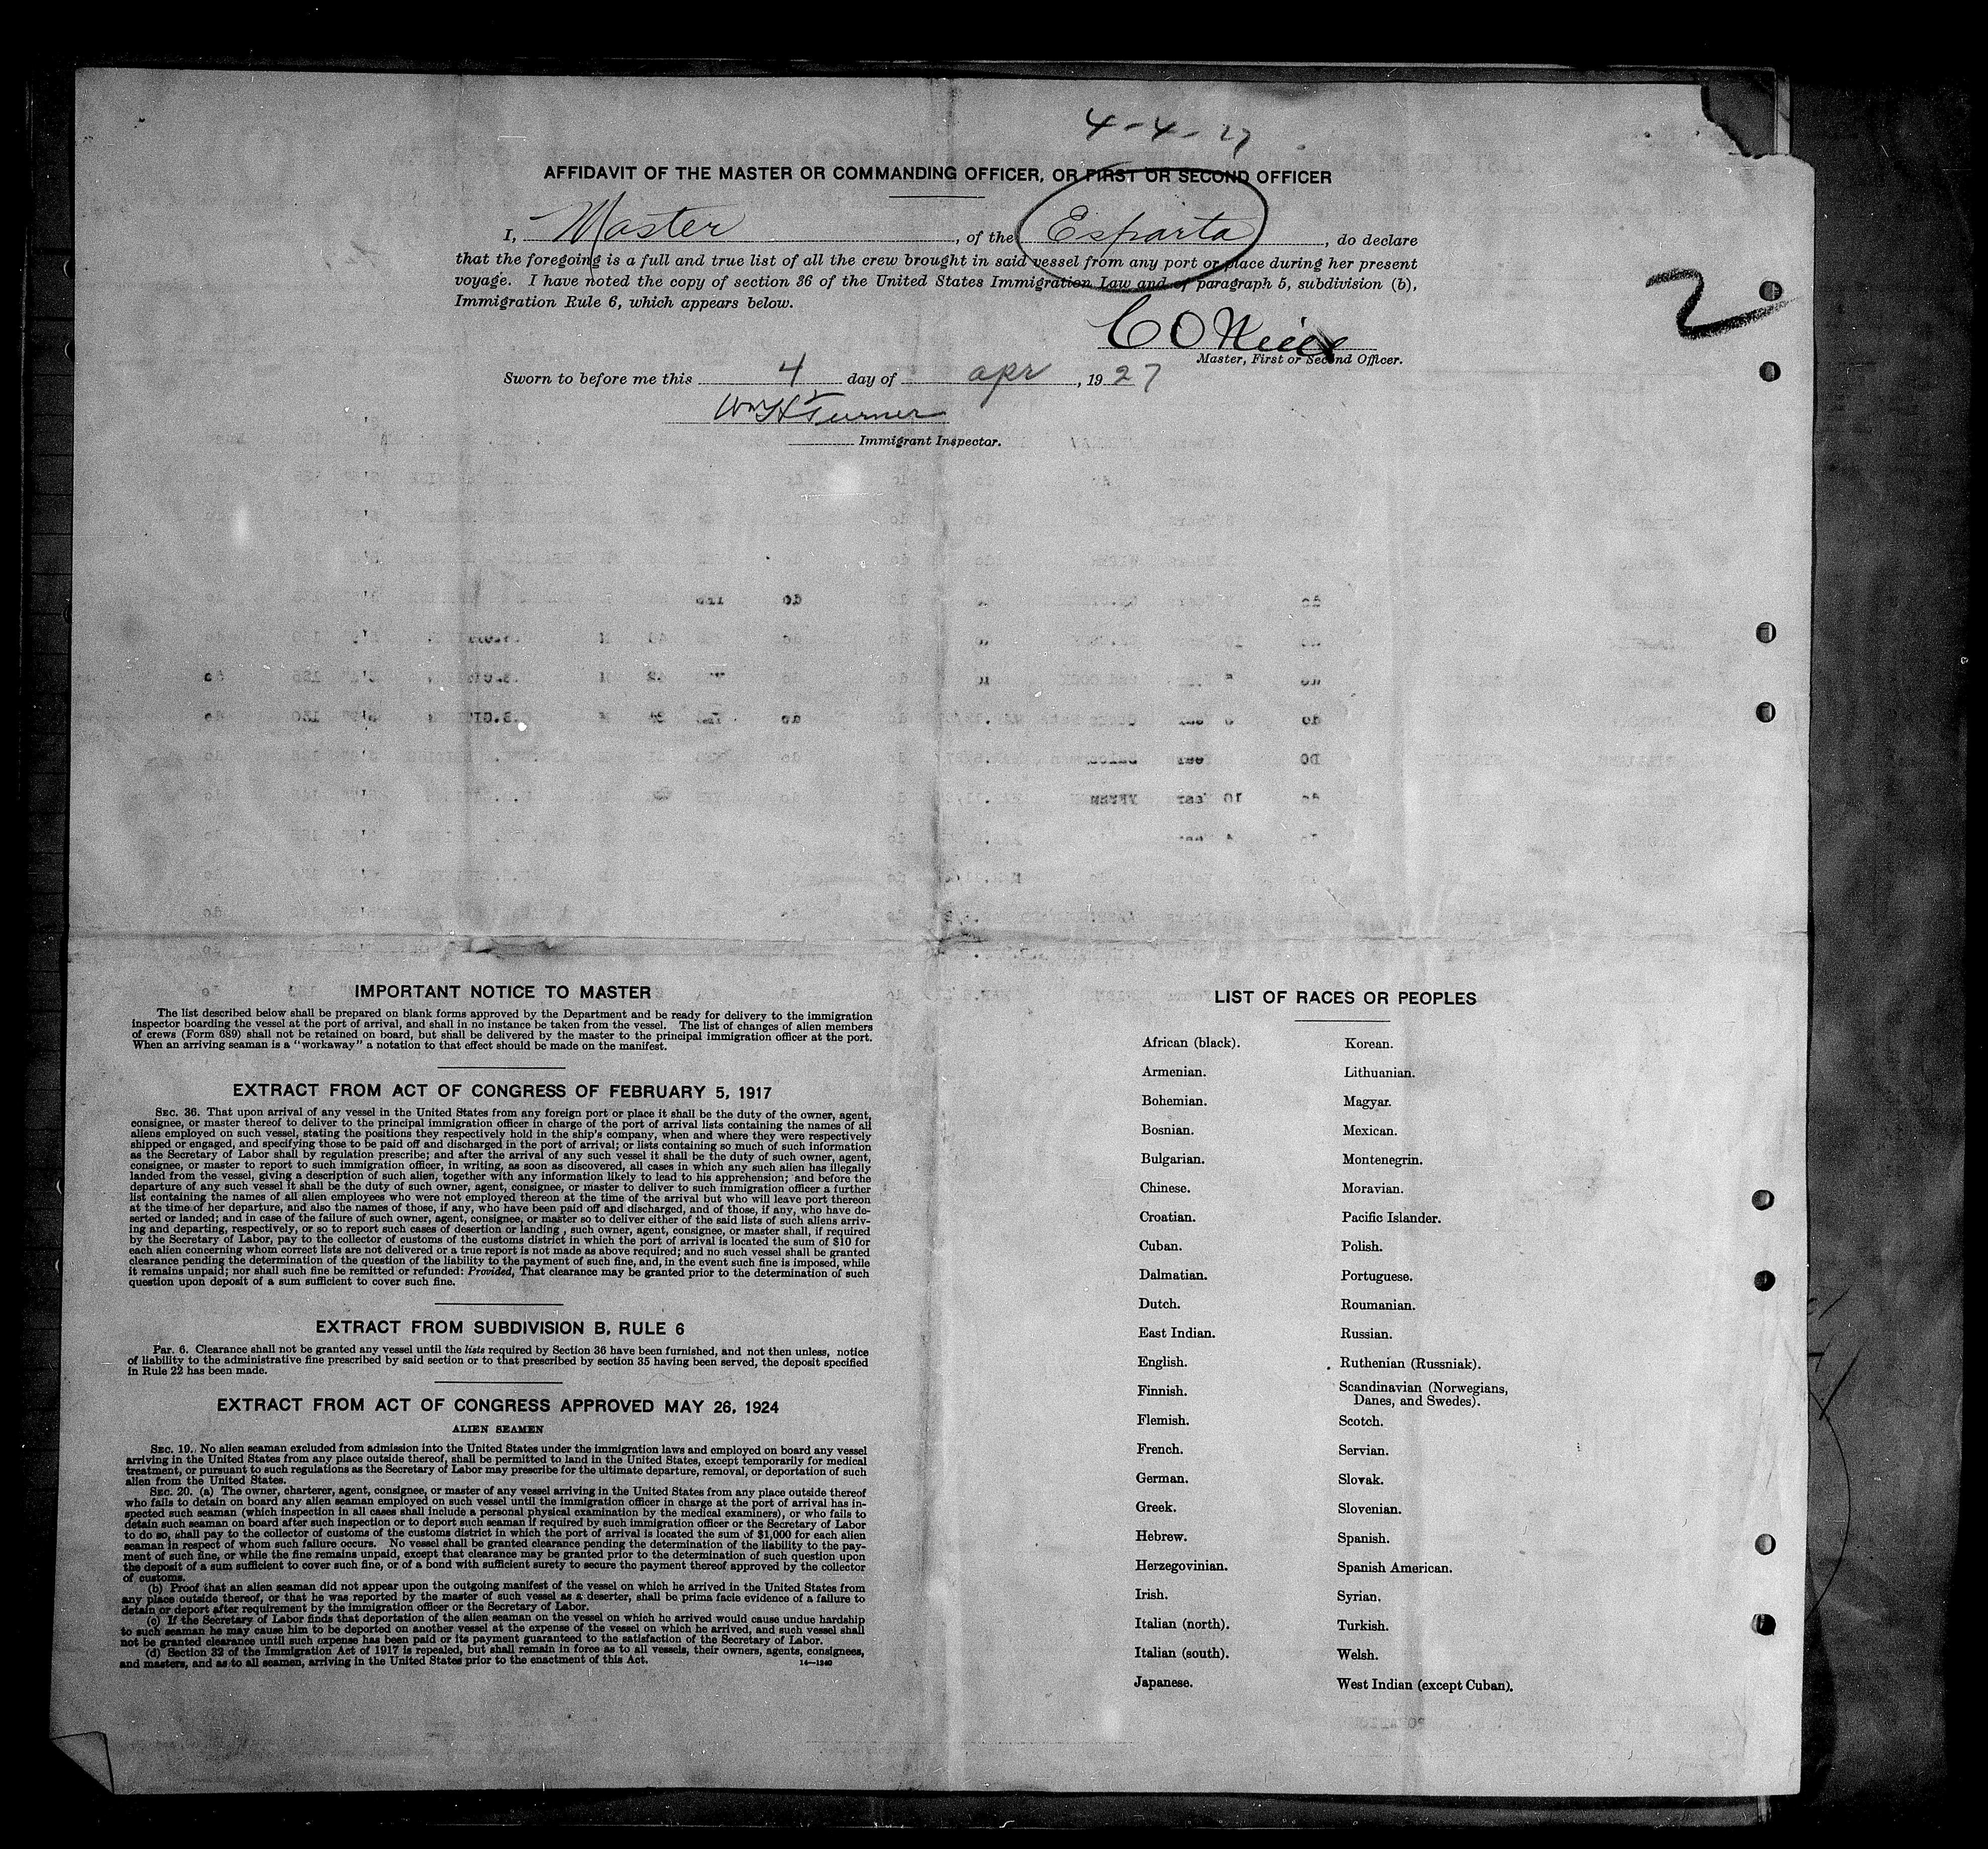 4-4-27
AFFIDAVIT OF THE MASTER OR COMMANDING OFFICER, OR FIRST OR SECOND OFFICER
I, Master, of the Esparta, do declare
that the foregoing is a full and true list of all the crew brought in said vessel from any port or place during her present
voyage. I have noted the copy of section 36 of the United States Immigration Law and of paragraph 5, subdivision (b),
Immigration Rule 6, which appears below.
2
C O Niell
Master, First or Second Officer.
Sworn to before me this 4 day of apr, 1927
Wm H Turner
Immigrant Inspector.
IMPORTANT NOTICE TO MASTER
The list described below shall be prepared on blank forms approved by the Department and be ready for delivery to the immigration
inspector boarding the vessel at the port of arrival, and shall in no instance be taken from the vessel. The list of changes of alien members
of crews (Form 689) shall not be retained on board, but shall be delivered by the master to the principal immigration officer at the port.
When an arriving seaman is a "workaway" a notation to that effect should be made on the manifest.
EXTRACT FROM ACT OF CONGRESS OF FEBRUARY 5, 1917
SEC. 36. That upon arrival of any vessel in the United States from any foreign port or place it shall be the duty of the owner, agent,
consignee, or master thereof to deliver to the principal immigration officer in charge of the port of arrival lists containing the names of all
aliens employed on such vessel, stating the positions they respectively hold in the ship's company, when and where they were respectively
shipped or engaged, and specifying those to be paid off and discharged in the port of arrival; or lists containing so much of such information
as the Secretary of Labor shall by regulation prescribe; and after the arrival of any such vessel it shall be the duty of such owner, agent,
consignee, or master to report to such immigration officer, in writing, as soon as discovered, all cases in which any such alien has illegally
landed from the vessel, giving a description of such alien, together with any information likely to lead to his apprehension; and before the
departure of any such vessel it shall be the duty of such owner, agent, consignee, or master to deliver to such immigration officer a further
list containing the names of all alien employees who were not employed thereon at the time of the arrival but who will leave port thereon
at the time of her departure, and also the names of those, if any, who have been paid off and discharged, and of those, if any, who have de-
serted or landed; and in case of the failure of such owner, agent, consignee, or master so to deliver either of the said lists of such aliens arriv-
ing and departing, respectively, or so to report such cases of desertion or landing, such owner, agent, consignee, or master shall, if required
by the Secretary of Labor, pay to the collector of customs of the customs district in which the port of arrival is located the sum of $10 for
each alien concerning whom correct lists are not delivered or a true report is not made as above required; and no such vessel shall be granted
clearance pending the determination of the question of the liability to the payment of such fine, and, in the event such fine is imposed, while
it remains unpaid; nor shall such fine be remitted or refunded: Provided, That clearance may be granted prior to the determination of such
question upon deposit of a sum sufficient to cover such fine.
EXTRACT FROM SUBDIVISION B, RULE 6
PAR. 6. Clearance shall not be granted any vessel until the lists required by Section 36 have been furnished, and not then unless, notice
of liability to the administrative fine prescribed by said section or to that prescribed by section 35 having been served, the deposit specified
in Rule 22 has been made.
EXTRACT FROM ACT OF CONGRESS APPROVED MAY 26, 1924
ALIEN SEAMEN
SEC. 19. No alien seaman excluded from admission into the United States under the immigration laws and employed on board any vessel
arriving in the United States from any place outside thereof, shall be permitted to land in the United States, except temporarily for medical
treatment, or pursuant to such regulations as the Secretary of Labor may prescribe for the ultimate departure, removal, or deportation of such
alien from the United States.
SEC. 20. (a) The owner, charterer, agent, consignee, or master of any vessel arriving in the United States from any place outside thereof
who fails to detain on board any alien seaman employed on such vessel until the immigration officer in charge at the port of arrival has in-
spected such seaman (which inspection in all cases shall include a personal physical examination by the medical examiners), or who fails to
detain such seaman on board after such inspection or to deport such seaman if required by such immigration officer or the Secretary of Labor
to do so, shall pay to the collector of customs of the customs district in which the port of arrival is located the sum of $1,000 for each alien
seaman in respect of whom such failure occurs. No vessel shall be granted clearance pending the determination of the liability to the pay-
ment of such fine, or while the fine remains unpaid, except that clearance may be granted prior to the determination of such question upon
the deposit of a sum sufficient to cover such fine, or of a bond with sufficient surety to secure the payment thereof approved by the collector
of customs.
(b) Proof that an alien seaman did not appear upon the outgoing manifest of the vessel on which he arrived in the United States from
any place outside thereof, or that he was reported by the master of such vessel as a deserter, shall be prima facie evidence of a failure to
detain or deport after requirement by the immigration officer or the Secretary of Labor.
(c) If the Secretary of Labor finds that deportation of the alien seaman on the vessel on which he arrived would cause undue hardship
to such seaman he may cause him to be deported on another vessel at the expense of the vessel on which he arrived, and such vessel shall
not be granted clearance until such expense has been paid or its payment guaranteed to the satisfaction of the Secretary of Labor.
(d) Section 32 of the Immigration Act of 1917 is repealed, but shall remain in force as to all vessels, their owners, agents, consignees,
and masters, and as to all seamen, arriving in the United States prior to the enactment of this Act.
14—1240
LIST OF RACES OR PEOPLES
African (black).
Armenian.
Bohemian.
Bosnian.
Bulgarian.
Chinese.
Croatian.
Cuban.
Dalmatian.
Dutch.
East Indian.
English.
Finnish.
Flemish.
French.
German.
Greek.
Hebrew.
Herzegovinian.
Irish.
Italian (north).
Italian (south).
Japanese.
Korean.
Lithuanian.
Magyar.
Mexican.
Montenegrin.
Moravian.
Pacific Islander.
Polish.
Portuguese.
Roumanian.
Russian.
Ruthenian (Russniak).
Scandinavian (Norwegians,
Danes, and Swedes).
Scotch.
Servian.
Slovak.
Slovenian.
Spanish.
Spanish American.
Syrian.
Turkish.
Welsh.
West Indian (except Cuban).